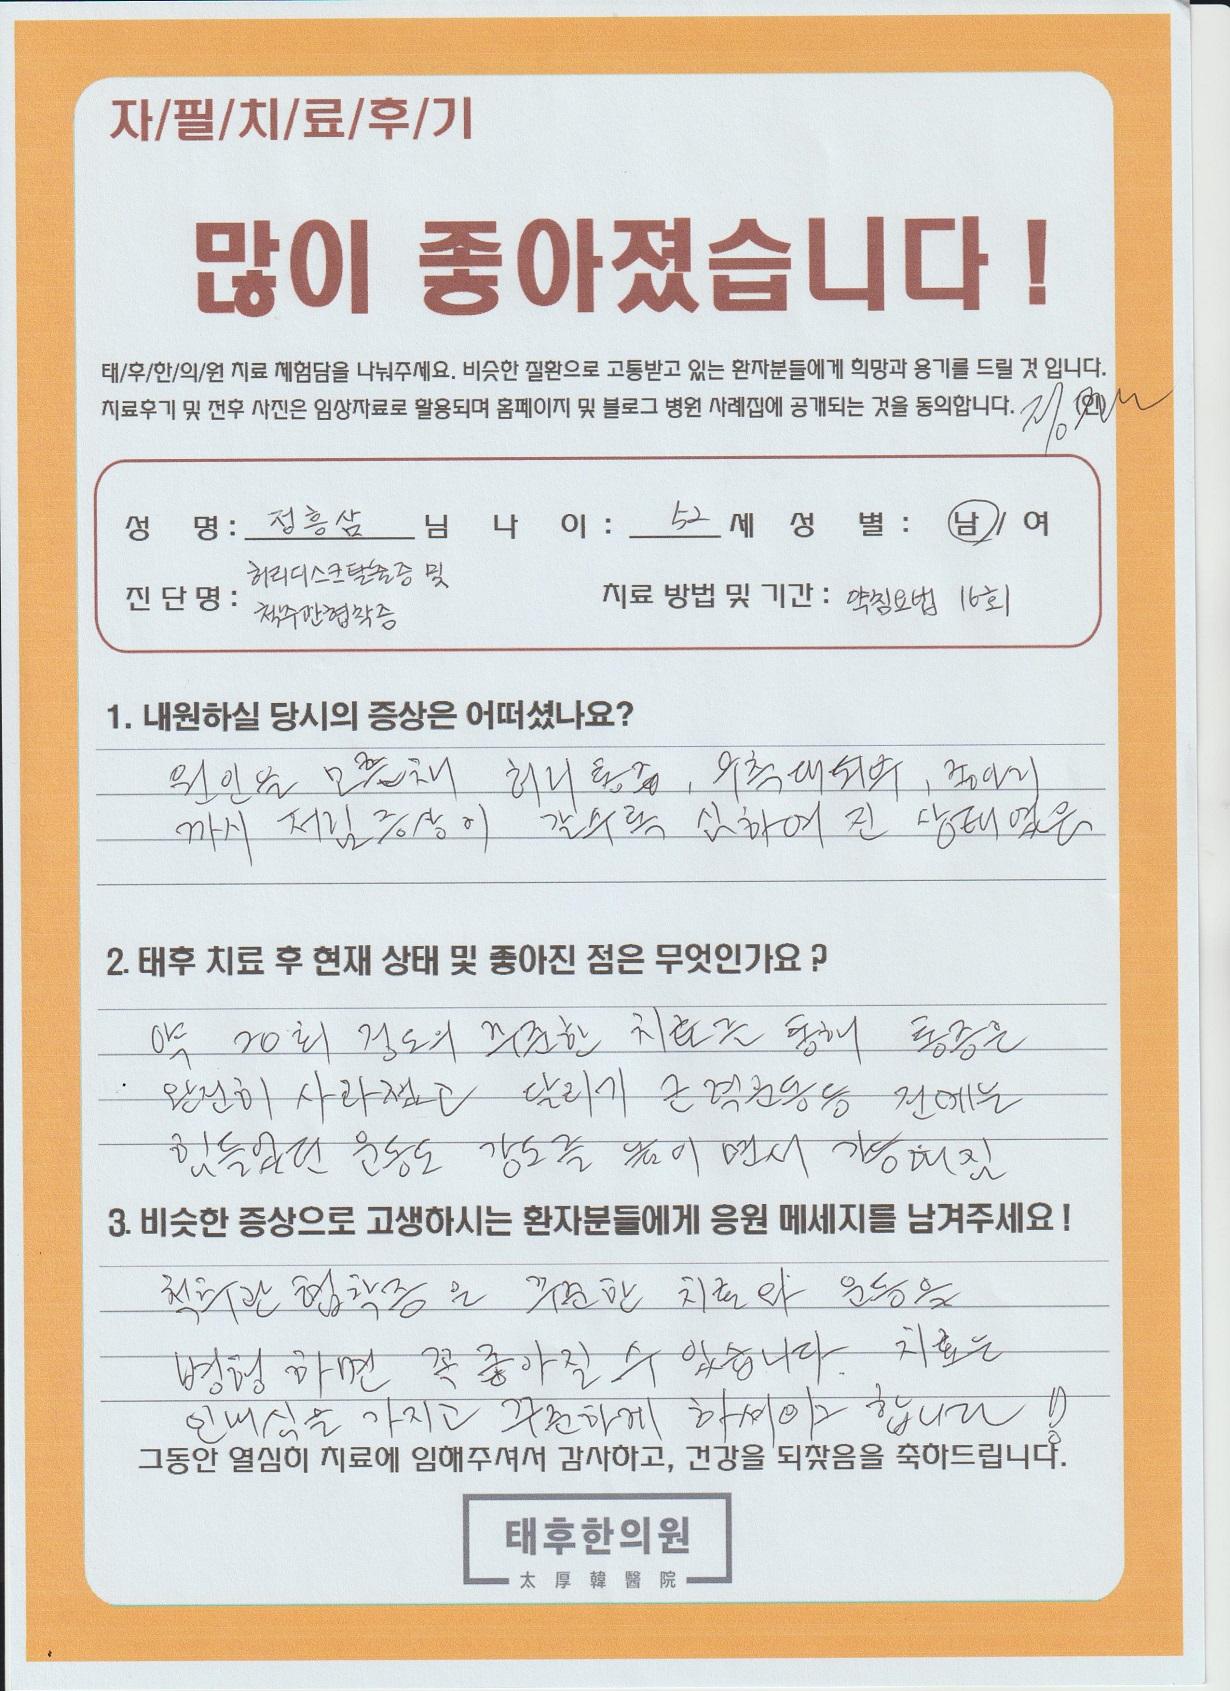 자/필/치/료/후/기
많이 좋아졌습니다 !
태/후/한/의/원 치료 체험담을 나눠주세요. 비슷한 질환으로 고통받고 있는 환자분들에게 희망과 용기를 드릴 것 입니다.
치료후기 및 전후 사진은 임상자료로 활용되며 홈페이지 및 블로그 병원 사례집에 공개되는 것을 동의합니다.
성 명 : 정흥삼 님 나 이 : 52 세 성 별 : 남 / 여
진 단 명 : 허리디스크탈출증 및
척추관협착증
치료 방법 및 기간 : 약침요법 16회
1. 내원하실 당시의 증상은 어떠셨나요?
원인을 모른채 허리 통증, 우측 대퇴부, 종아리
까지 저림 증상이 갈수록 심하여 진 상태였음
2. 태후 치료 후 현재 상태 및 좋아진 점은 무엇인가요 ?
약 20회 정도의 꾸준한 치료를 통해 통증은
완전히 사라졌고 달리기 근력운동등 전에는
힘들었던 운동도 강도를 높이면서 가능해짐
3. 비슷한 증상으로 고생하시는 환자분들에게 응원 메세지를 남겨주세요 !
척추관 협착증은 꾸준한 치료와 운동을
병행하면 꼭 좋아질 수 있습니다. 치료는
인내심을 가지고 꾸준하게 하셔야 합니다 !!
그동안 열심히 치료에 임해주셔서 감사하고, 건강을 되찾음을 축하드립니다.
태후한의원
太厚韓醫院